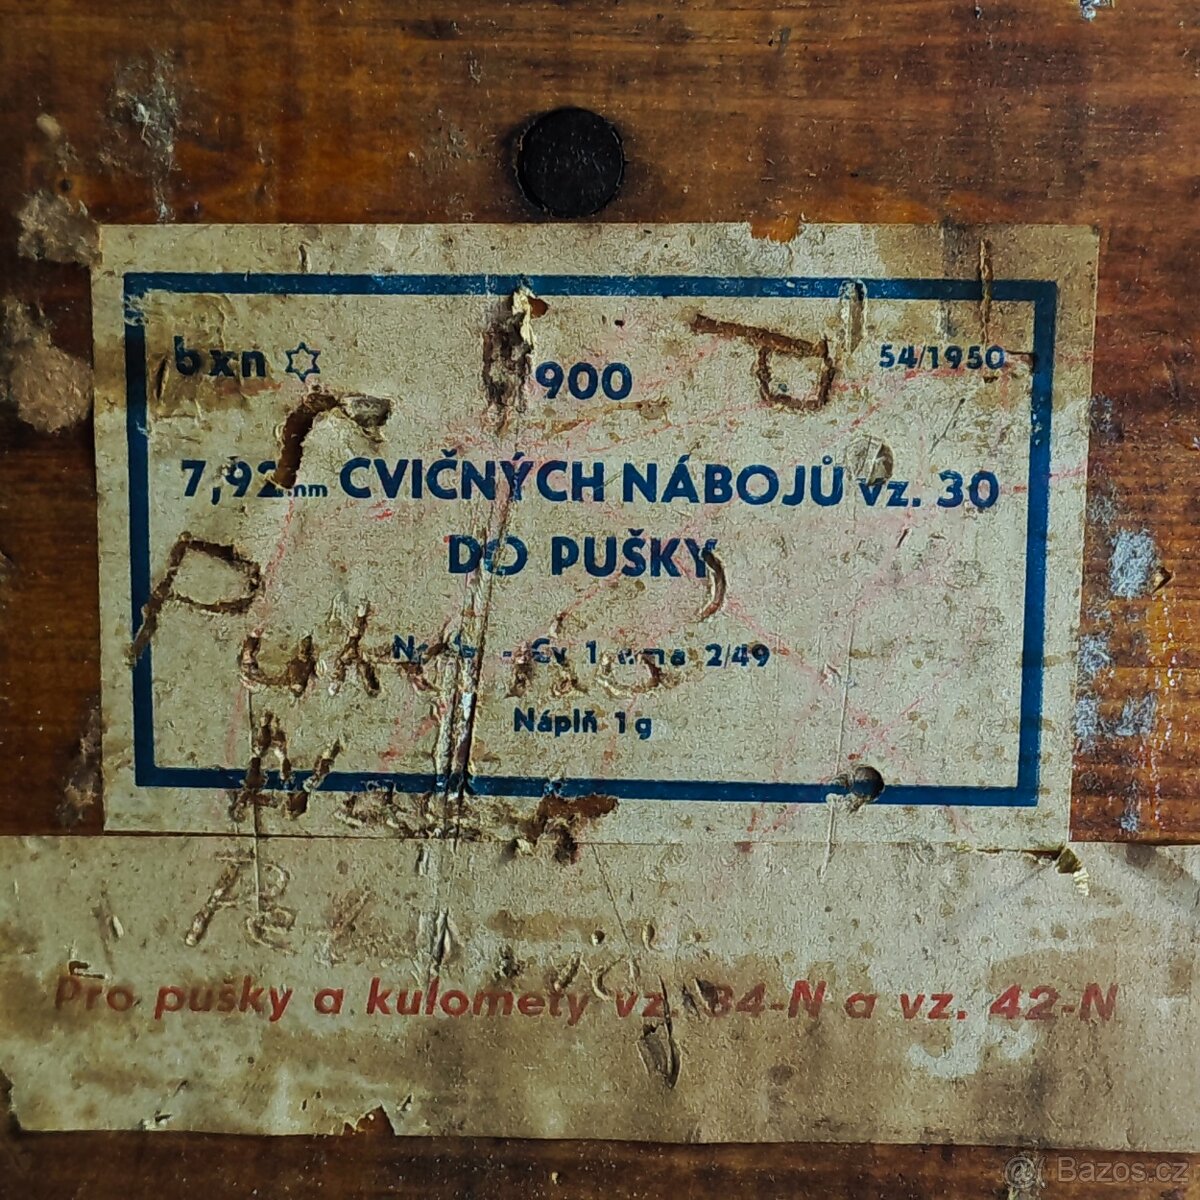 bxn 900 54/1950
7,92 mm CVIČNÝCH NÁBOJŮ vz. 30
DO PUŠKY
2/49
Náplň 1 g
Pro pušky a kulomety vz. 34-N a vz. 42-N
@ Bazos.cz